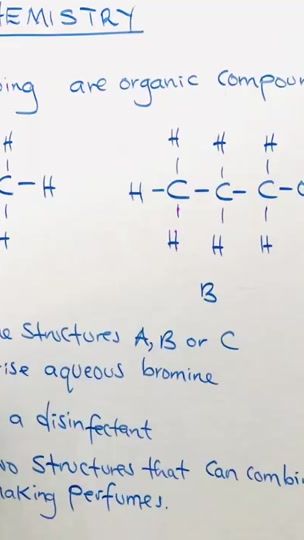 HEMISTRY
ing are organic compoun
H H H H
C-H H-C-C-C-C
H H H H
B
e structures A, B or C
ise aqueous bromine
a disinfectant
wo structures that can combin
aking perfumes.